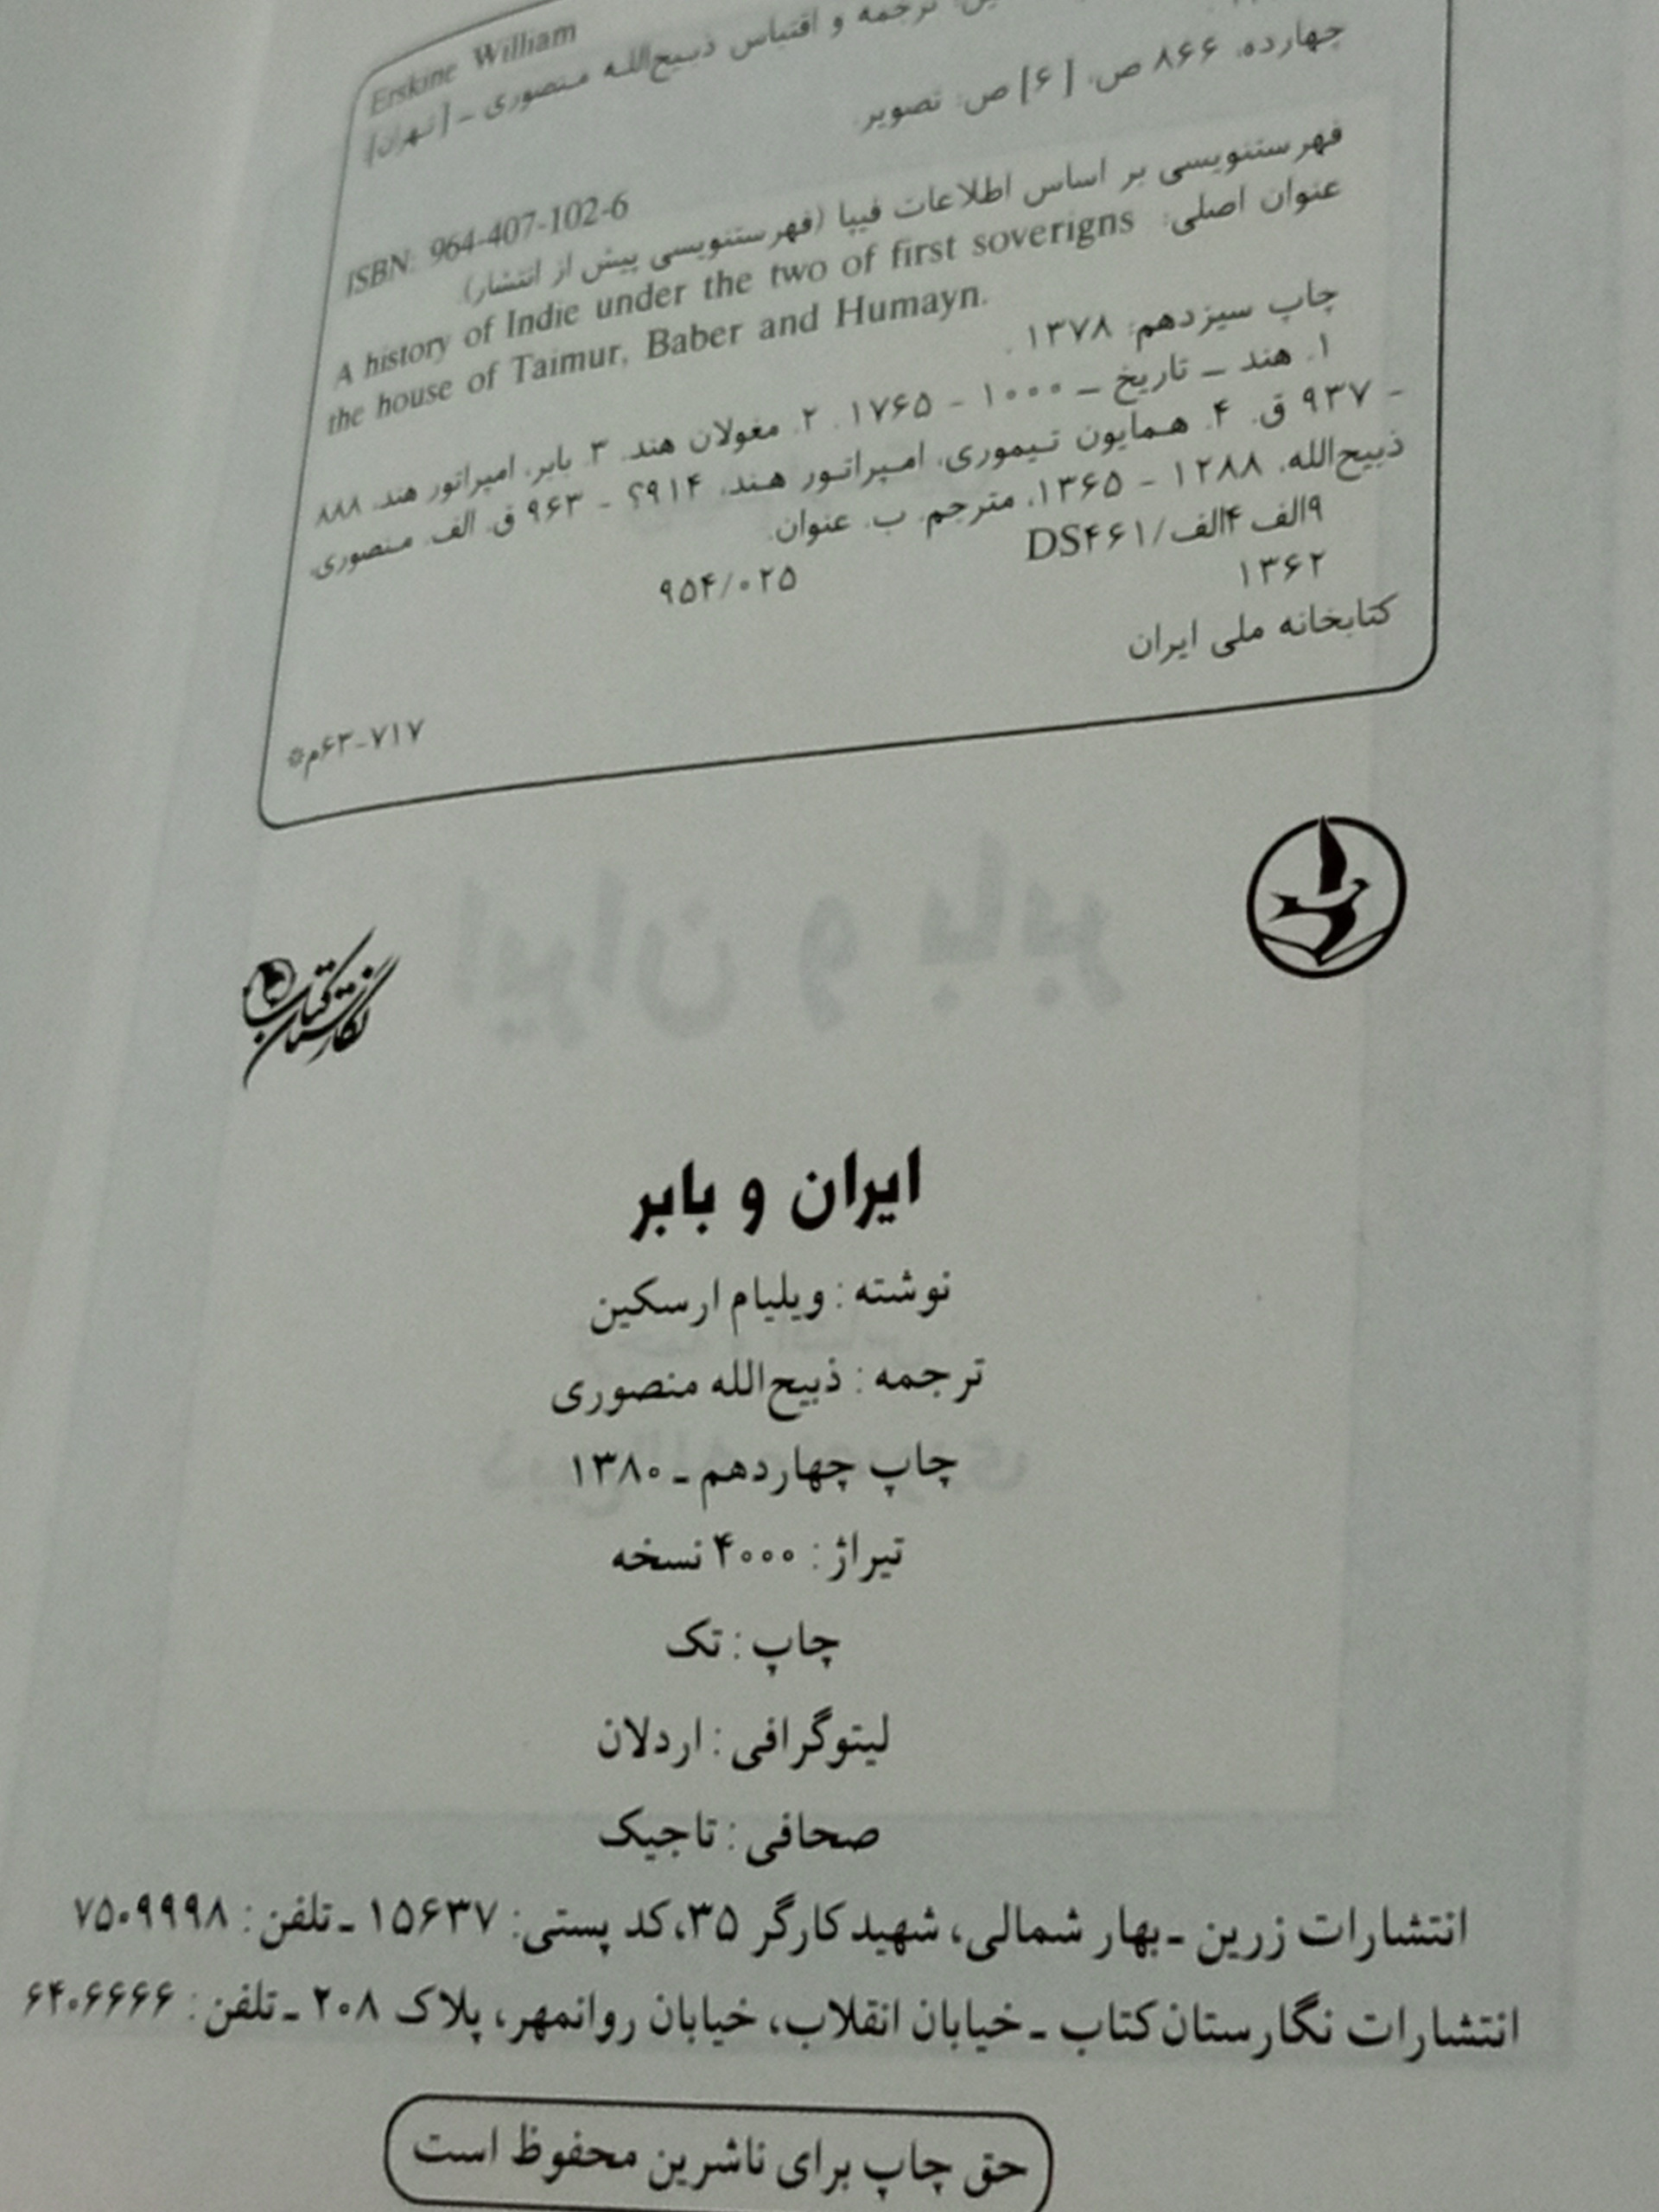 Erskine William
ترجمه و اقتباس ذبیح‌الله منصوری ـ [تهران]
چهارده، ۸۶۶ ص، [۶] ص: تصویر.
ISBN: 964-407-102-6
فهرستنویسی بر اساس اطلاعات فیپا (فهرستنویسی پیش از انتشار).
عنوان اصلی:
A history of Indie under the two of first soverigns
the house of Taimur, Baber and Humayn.
چاپ سیزدهم: ۱۳۷۸.
۱. هند ـ تاریخ ـ ۱۰۰۰ - ۱۷۶۵. ۲. مغولان هند. ۳. بابر، امپراتور هند، ۸۸۸
- ۹۳۷ ق. ۴. همایون تیموری، امپراتور هند، ۹۱۴؟ - ۹۶۳ ق. الف. منصوری،
ذبیح‌الله، ۱۲۸۸ - ۱۳۶۵، مترجم. ب. عنوان.
۹الف ۴الف/DS۴۶۱
۹۵۴/۰۲۵
۱۳۶۲
کتابخانه ملی ایران
۷۱۷-۶۳م*
نگارستان کتاب
ایران و بابر
نوشته : ویلیام ارسکین
ترجمه : ذبیح‌الله منصوری
چاپ چهاردهم ـ ۱۳۸۰
تیراژ : ۴۰۰۰ نسخه
چاپ : تک
لیتوگرافی : اردلان
صحافی : تاجیک
انتشارات زرین ـ بهار شمالی، شهید کارگر ۳۵، کد پستی: ۱۵۶۳۷ ـ تلفن : ۷۵۰۹۹۹۸
انتشارات نگارستان کتاب ـ خیابان انقلاب، خیابان روانمهر، پلاک ۲۰۸ ـ تلفن : ۶۴۰۶۶۶۶
حق چاپ برای ناشرین محفوظ است